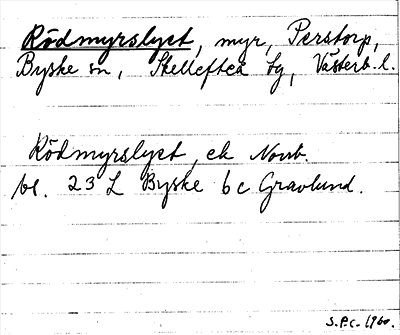 Rödmyrslyct, myr, Perstorp,
Byske sn, Skellefteå tg, Västerb. l.
Rödmyrslyct, ek Norrb.
bl. 23 L Byske bc Gravlund.
S.P.C. 1960.